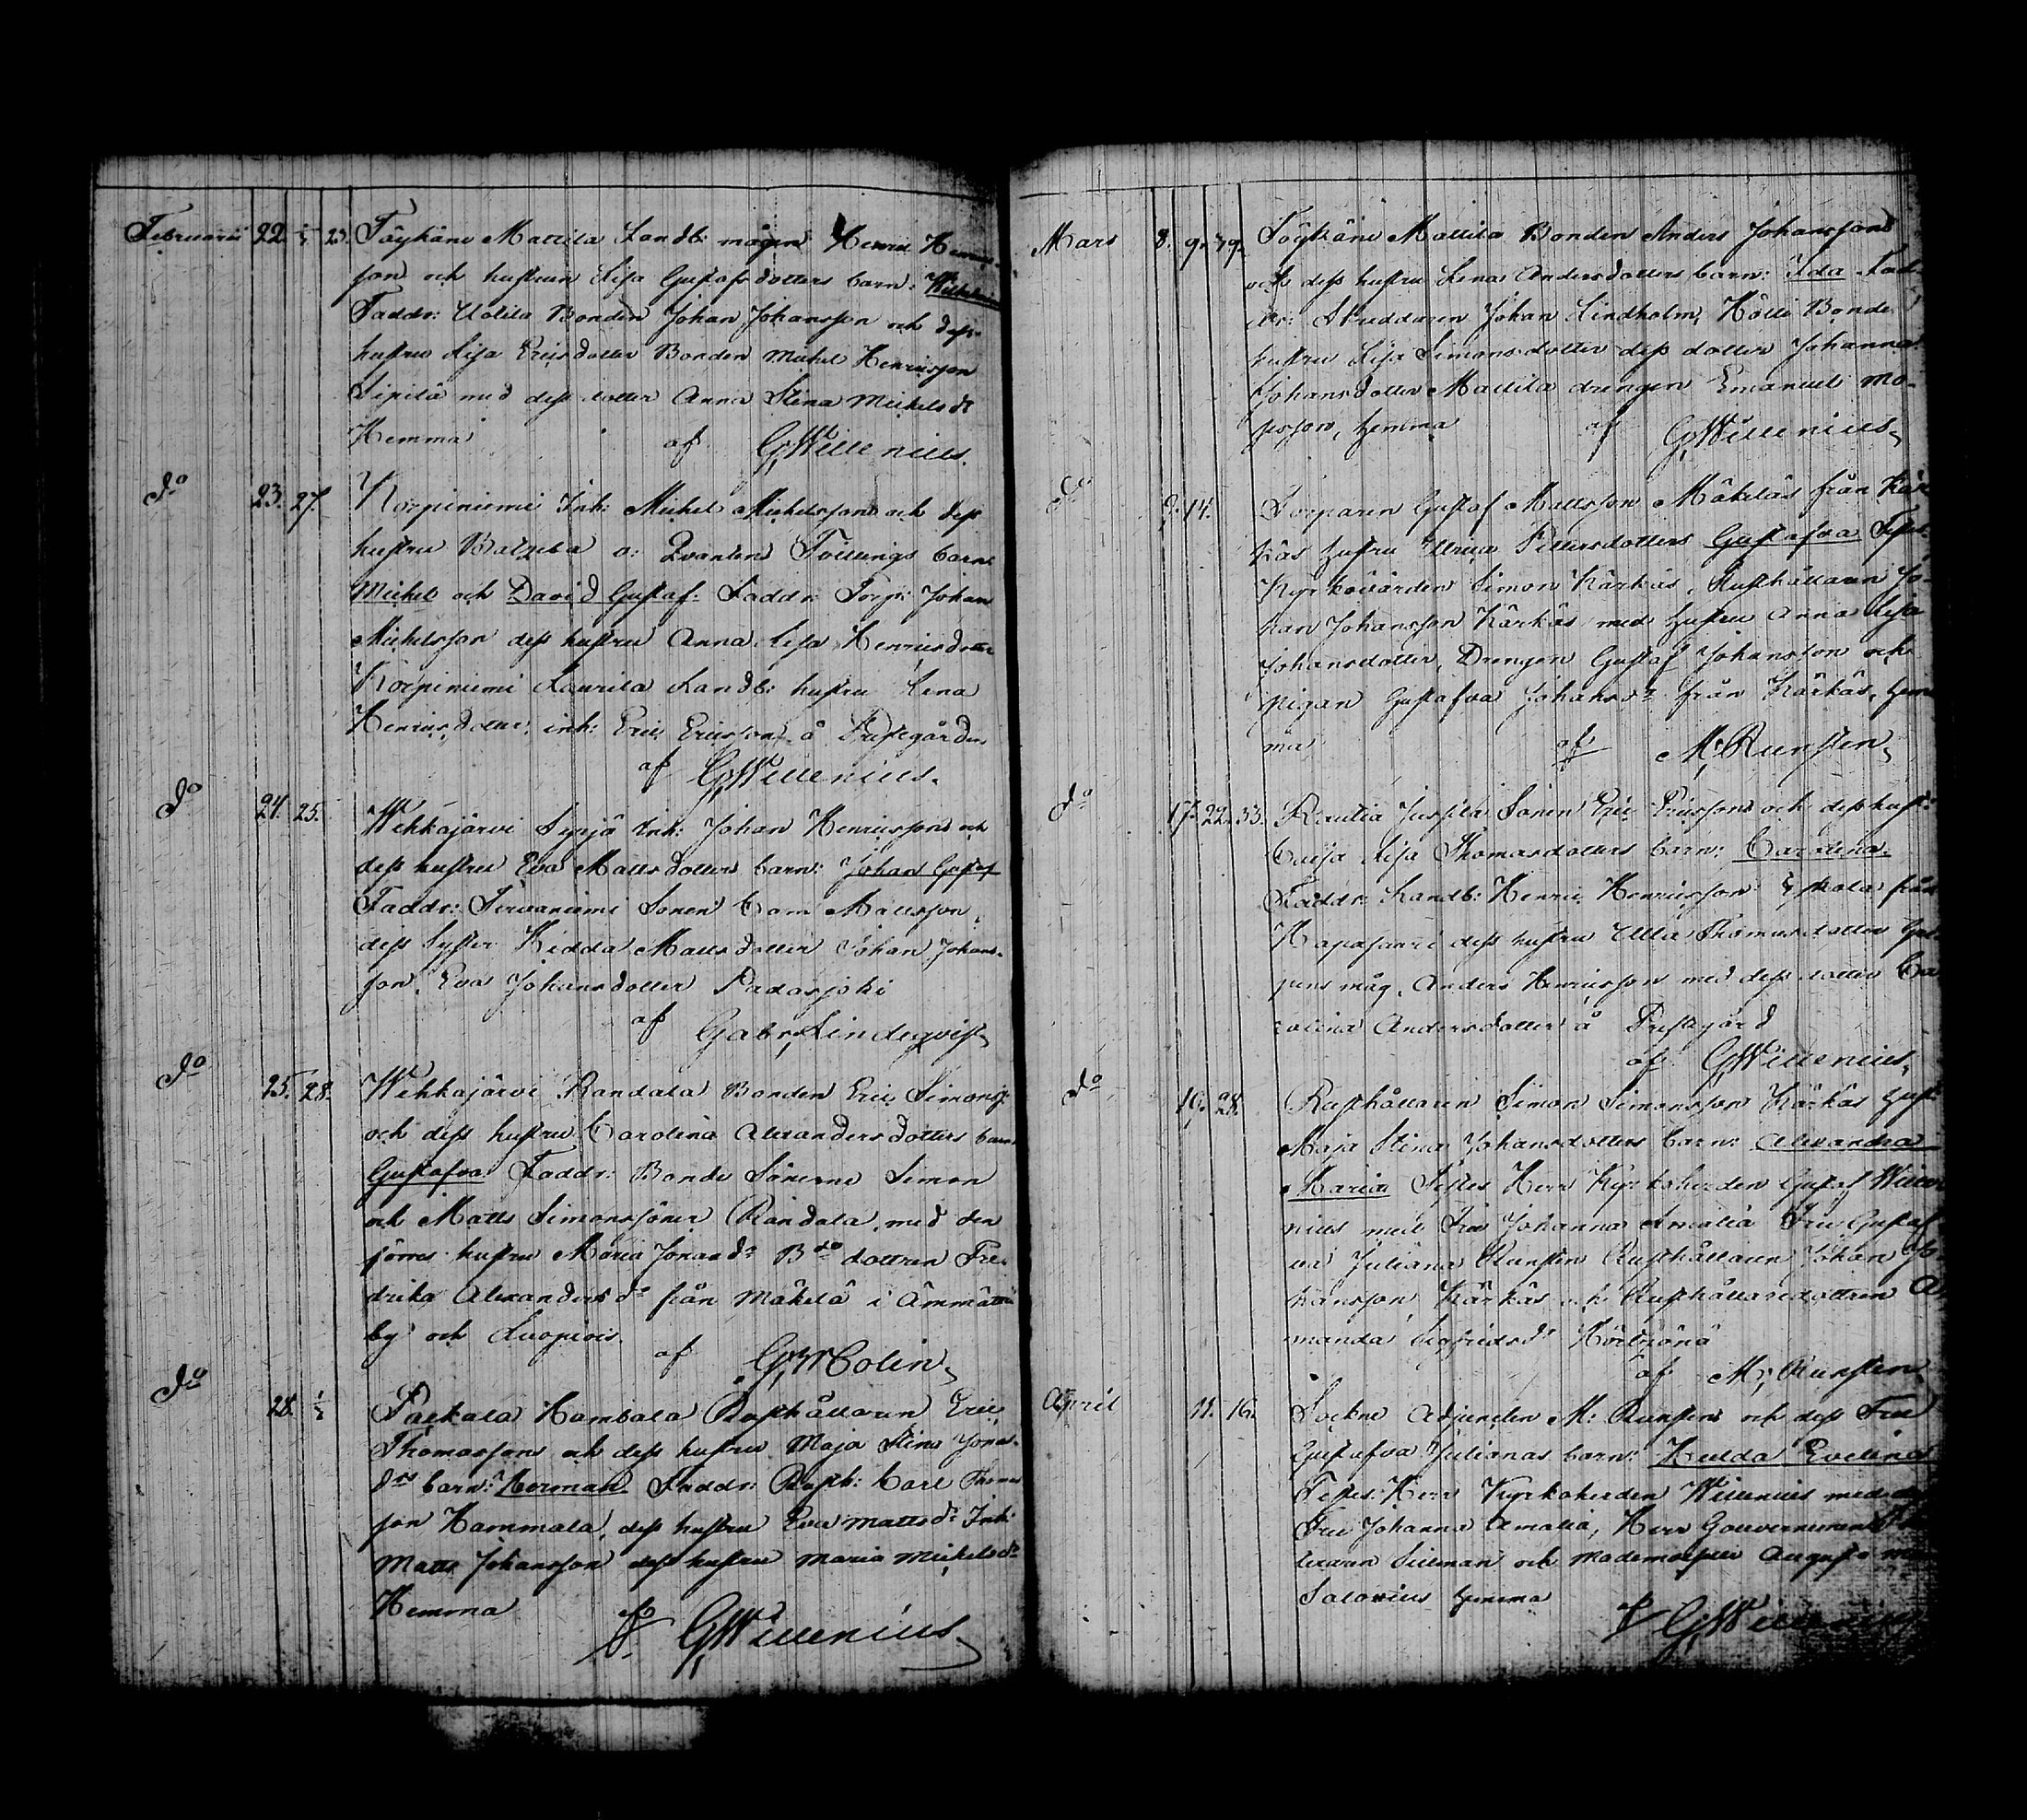 Februarii 22. 23. Töykäne Mattila Landb: mågen Henric Henrics-
son och hustrun Lisa Gustafsdotters barn: Wilhelmina
Faddr: Uotila Bonden Johan Johansson och dess
hustru Lisa Ericsdotter Bonden Michel Henricsson
Sipilä med dess dotter Anna Stina Michelsdr
Hemma af GWillenius.
do 23. 27. Korpiniemi Inh: Michel Michelssons och dess
hustru Batzeba o: Qvantens Tvillings barn
Michel och David Gustaf. Faddr: Torp: Johan
Michelsson dess hustru Anna Lisa Henricsdotter
Korpiniemi Laurila Landb: hustru Lena
Henricsdotter, inh: Eric Ericsson å Prestgården
af GWillenius.
do 24. 25. Wehkajärvi Syrjä Inh: Johan Henricssons och
dess hustru Eva Mattsdotters barn: Johan Gustaf
Faddr: Sonen Mattsson,
dess Syster Hedda Mattsdotter Johan Johans-
son, Eva Johansdotter Padasjoki
af Gabr. Lindeqvist
do 25. 28. Wehkajärvi Randala Bonden Eric Simonss:
och dess hustru Carolina Alexandersdotters barn
Gustafva. Faddr: Bonde Sönerne Simon
och Matts Simonssöner Randala, med den
förres hustru Maria Jonasdr Bde dottren Fre-
drika Alexandersdr från Mäkelä i
by och Luopiois.
af GWColin
do 28. Paekala Hambala Rusthållaren Eric
Thomasson och dess hustru Maja Stina Jonas-
drs barn: Herman. Faddr: Rusth: Carl Thomas
son Hammala, dess hustru Eva Mattsdr Inh:
Matts Johansson dess hustru Maria Michelsdr
Hemma af GWillenius
Mars 8. 9. 79. Töykäne Mattila Bonden Anders Johanssons
och dess hustru Lena Andersdotters barn: Ida Fad-
dr: Skräddaren Johan Lindholm, Bonde
hustru Lisa Simonsdotter dess dotter Johanna
Johansdotter Mattila drengen Emanuel Mo-
sesson, hemma af GWillenius
do 9. 14. Torparen Gustaf Mattsson Mäkeläs från Kär-
käs hustru Ulrica Pettersdotters Gustafva Test:
Kyrkovärden Simon Kärkäs, Rusthållaren Jo-
han Johansson Kärkäs med hustru Anna Lisa
Johansdotter, Drengen Gustaf Johansson och
pigan Gustafva Johansdr från Kärkäs, hem-
ma af M. Runsten
do 17. 22. 33. Rautia Jussila Sonen Eric Ericssons och dess hust:
Caisa Lisa Thomasdotters barn: Carolina.
Faddr: Landb: Henric Henricsson från
Hapasaari dess hustru Ulla Thomasdotter
måg, Anders Henricsson med dess dotter Ca-
rolina Andersdotter å Prestgård
af GWillenius
do 19. 28. Rusthållaren Simon Simonsson Kärkäs hust:
Maja Stina Johansdotters barn: Alexandra
Maria Testes Herr Kyrkoherden Gustaf Wille-
nius med Fru Johanna Amalia Fru Gustaf-
va Juliana Runsten Rusthållaren Johan Jo-
hansson Kärkäs och Rusthållaredottren A-
manda Sigfridsdr
af M. Runsten
April 11. 16. Sockne Adjuncten M: Runstens och dess Fru
Gustafva Julianas barn: Hulda Evelina
Testes: Herr Kyrkoherden Willenius med
Fru Johanna Amalia, Herr Gouvernements
Sillman och Mademoiselle Augusta
Salovius hemma
af GWillenius